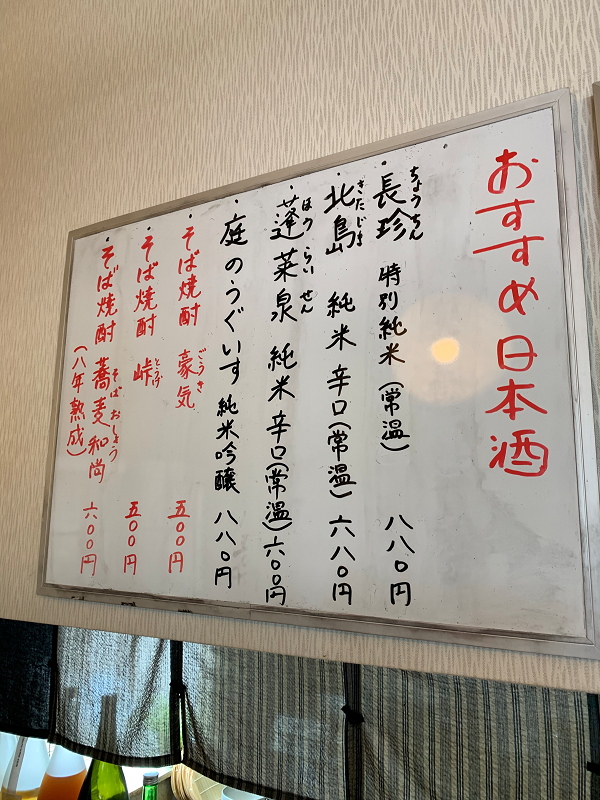 おすすめ日本酒
・長珍 特別純米(常温) 八八〇円
ちょうちん
・北島 純米 辛口(常温) 六八〇円
きたじま
・蓬莱泉 純米 辛口(常温) 六〇〇円
ほうらいせん
・庭のうぐいす 純米吟醸 八八〇円
・そば焼酎 豪気 五〇〇円
ごうき
・そば焼酎 峠 五〇〇円
とうげ
・そば焼酎 蕎麦和尚 六〇〇円
そばおしょう
(八年熟成)